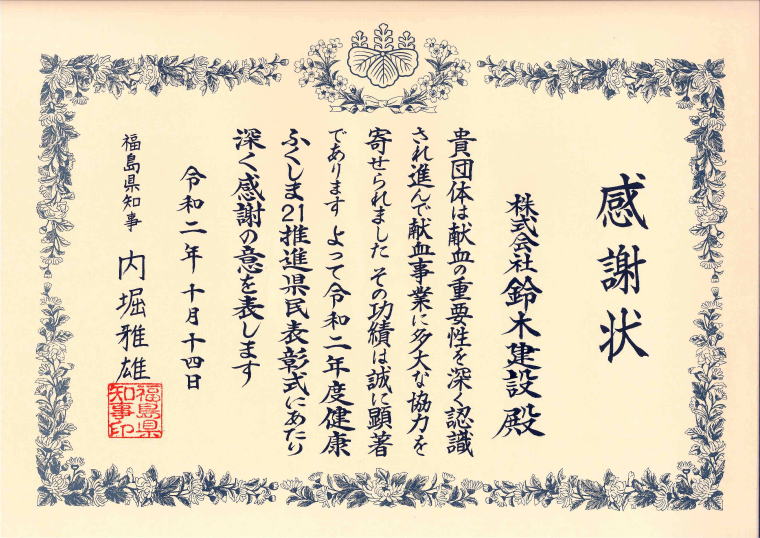 感謝状
株式会社鈴木建設殿
貴団体は献血の重要性を深く認識
され進んで献血事業に多大な協力を
寄せられました その功績は誠に顕著
であります よって令和二年度健康
ふくしま21推進県民表彰式にあたり
深く感謝の意を表します
令和二年十月十四日
福島県知事 内堀雅雄
福島県
知事印